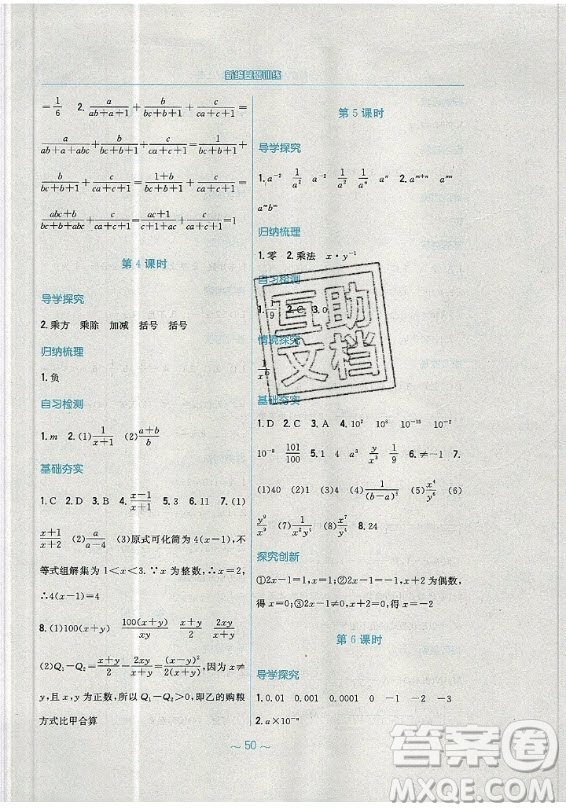 新编基础训练
-1/6 2. a/(ab+a+1) + b/(bc+b+1) + c/(ca+c+1) =
a/(ab+a+abc) + b/(bc+b+1) + c/(ca+c+1) = 1/(bc+b+1) +
b/(bc+b+1) + c/(ca+c+1) = (1+b)/(bc+b+1) + c/(ca+c+1) =
(abc+b)/(bc+b+abc) + c/(ca+c+1) = (ac+1)/(ac+c+1) + c/(ca+c+1) =1
第 4 课时
导学探究
2.乘方 乘除 加减 括号 括号
归纳梳理
1.负
自习检测
1.m 2.(1) 1/(x+1) (2) (a+b)/b
基础夯实
1.C 2.D 3.A 4. (x-1)/(x+1) 5.3 6.11 7.(1)
(x+1)/(x+2) (2) a/(a-4) (3)原式可化简为4(x-1),不
等式组解集为1<x<3.∵x为整数,∴x=2,
∴4(x-1)=4
8.(1)100(x+y) 100(x+y)/xy (x+y)/2 2xy/(x+y)
(2)Q₁-Q₂= (x+y)/2 - 2xy/(x+y) = (x-y)²/2(x+y),因为x≠
y,且x,y为正数,所以Q₁-Q₂>0,即乙的购粮
方式比甲合算
第 5 课时
导学探究
1.a⁻² 1/a² a⁻² 1/a³ 1/aⁿ 2.aᵐ⁺ⁿ aᵐⁿ
aᵐbᵐ
归纳梳理
1.零 2.乘法 x·y⁻¹
自习检测
1/9 2.C 3.
情境探究
基础夯实
1.D 2.C 3.A 4.1 10⁶ 10⁻²
10⁻⁶ 101/100 5.1 a² y/x³ 1/9 6.≠-1 7.
(1)40 (2) 1/(b-a)² (4) (5) (6)
(7) (8) 8.24
探究创新
①2x-1=1,x=1;②2x-1=-1,x+2为偶数,
得x=0;③x+2=0,得x=-2
第 6 课时
导学探究
1.0.01 0.001 0.0001 0 -1 -2 -3
2.a×10⁻ⁿ
~ 50 ~
互助
文档
答案圈
MXQE.COM